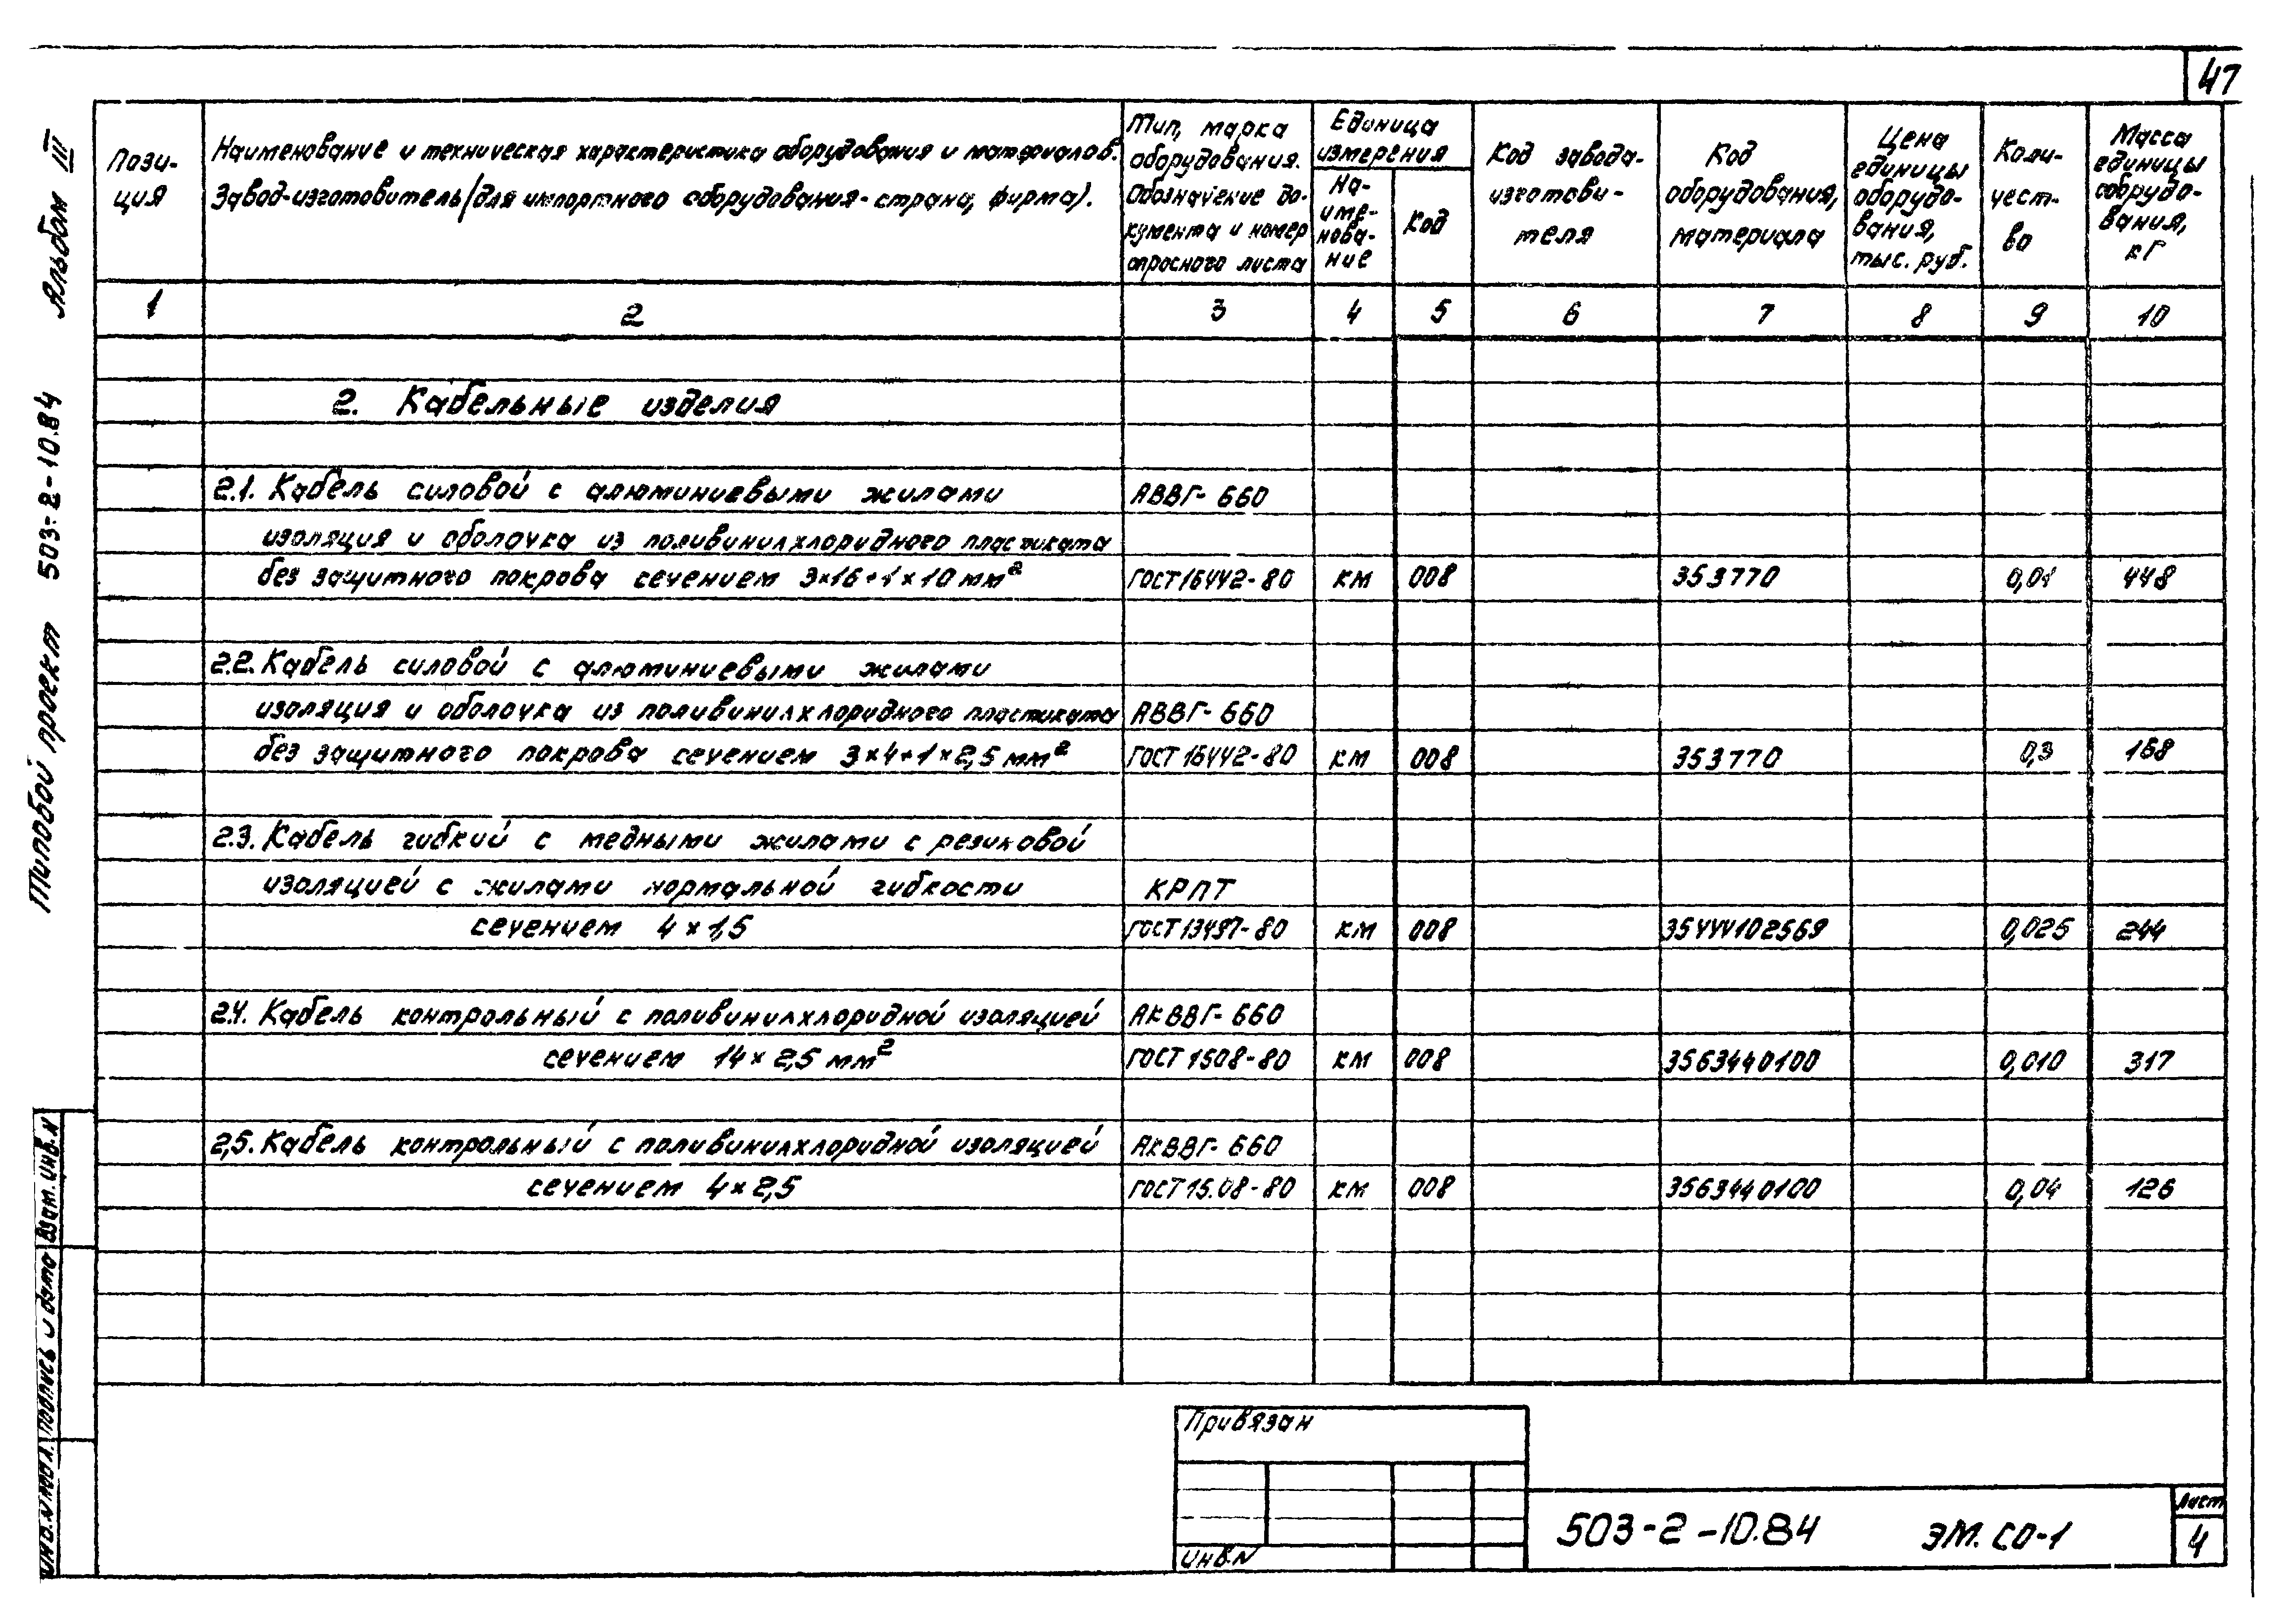 47
Альбом III
Типовой проект 503-2-10.84
Пози-
ция
Наименование и техническая характеристика оборудования и материалов.
Завод-изготовитель/для импортного оборудования-страна, фирма).
Тип, марка
оборудования.
Обозначение до-
кумента и номер
опросного листа
Единица
измерения
На-
име-
нова-
ние
Код
Код завода-
изготови-
теля
Код
оборудования,
материала
Цена
единицы
оборудо-
вания,
тыс. руб.
Коли-
чест-
во
Масса
единицы
оборудо-
вания,
кг
1 2 3 4 5 6 7 8 9 10
2. Кабельные изделия
2.1. Кабель силовой с алюминиевыми жилами АВВГ-660
изоляция и оболочка из поливинилхлоридного пластиката
без защитного покрова сечением 3×16+1×10 мм² ГОСТ 16442-80 км 008 353770 0,01 448
2.2. Кабель силовой с алюминиевыми жилами
изоляция и оболочка из поливинилхлоридного пластиката АВВГ-660
без защитного покрова сечением 3×4+1×2,5 мм² ГОСТ 16442-80 км 008 353770 0,3 168
2.3. Кабель гибкий с медными жилами с резиновой
изоляцией с жилами нормальной гибкости КРПТ
сечением 4×1,5 ГОСТ 13497-80 км 008 35444102569 0,025 244
2.4. Кабель контрольный с поливинилхлоридной изоляцией АКВВГ-660
сечением 14×2,5 мм² ГОСТ 1508-80 км 008 3563440100 0,010 317
2,5. Кабель контрольный с поливинилхлоридной изоляцией АКВВГ-660
сечением 4×2,5 ГОСТ 15.08-80 км 008 3563440100 0,04 126
Взам. инв. N
Подпись и дата
Инв. N подл.
Привязан
Инв. N
503-2-10.84 ЭМ. СО-1
Лист
4